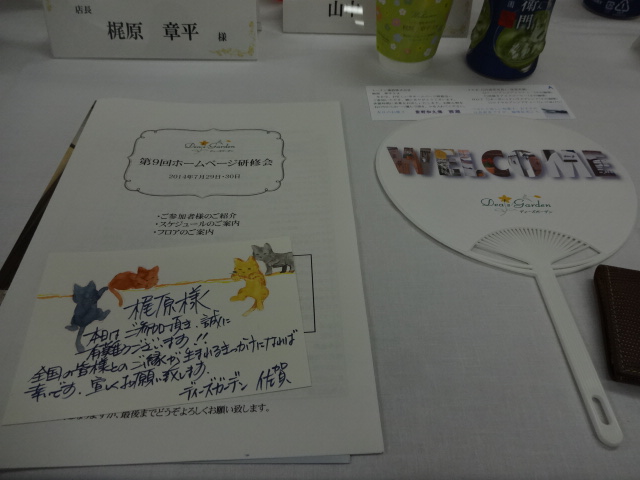 店長
梶原 章平 様
山
衛門
Dea's Garden
第9回ホームページ研修会
2014年7月29日・30日
・ご参加者様のご紹介
・スケジュールのご案内
・フロアのご案内
梶原様
本日はご参加頂き、誠に
有難うございます!!
全国の皆様とのご縁が生まれるきっかけになれば
幸です。宜しくお願い致します。
ディーズガーデン 佐賀
最後までどうぞよろしくお願い致します。
WELCOME
Dea's Garden
ディーズガーデン